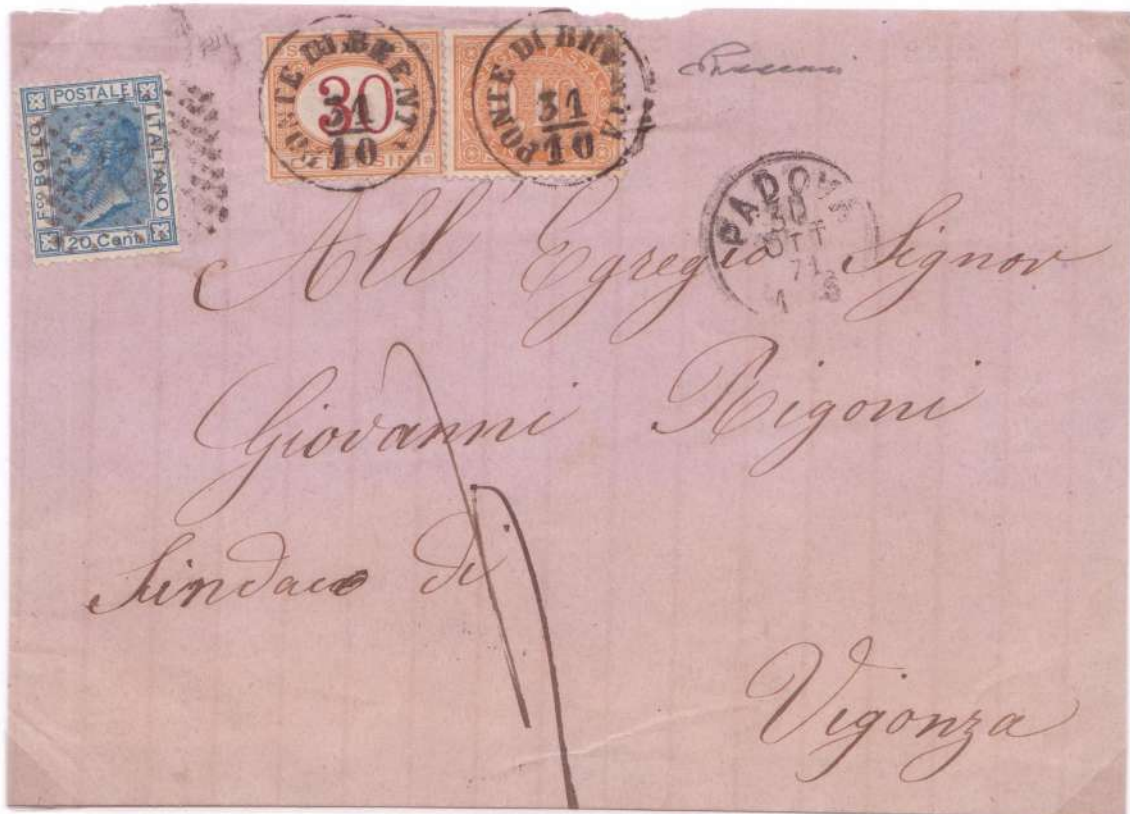 POSTALE
ITALIANO
FCO BOLLO
20 Cent
PONTE DI BRENTA
30
31
10
PONTE DI BRENTA
31
10
PADOVA
30
OTT
71
All' Egregio Signor
Giovanni Rigoni
Sindaco di
Vigonza